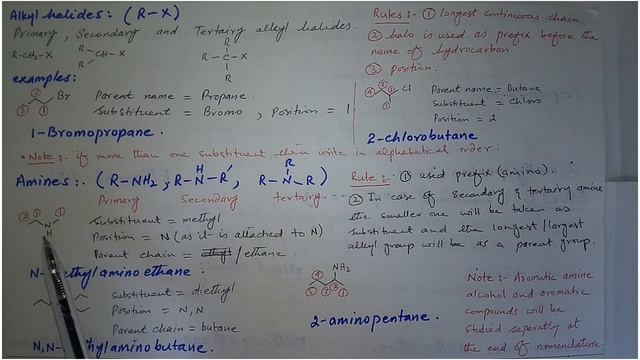 Alkyl halides: (R-X)
Primary, Secondary and Tertairy alkyl halides.
R-CH2-X
R
R
CH-X
R
R-C-X
R
examples:
2
3
1
Br
Parent name = Propane.
Substituent = Bromo, Position = 1
1-Bromopropane.
Rules:- ① longest continuous chain.
② halo is used as prefix before the
name of hydrocarbon.
③ Position.
4
3
2
1
Cl
Parent name = Butane
Substituent = chloro
Position = 2
2-chlorobutane
• Note:- if more than one substituent then write in alphabatical order.
Amines:. (R-NH2, R-N-R', R-N-R)
H
R
Primary Secondary tertairy.
2
1
1
N
H
Substituent = methyl
Position = N (as it is attached to N)
Parent chain = ethyl / ethane.
N- ethylamino ethane.
Substituent = diethyl
Position = N,N
Parent chain = butane
N,N- hylaminobutane.
Rule:- ① used prefix (amino).
② In case of Secondary & tertairy amine
the smaller one will be taken as
substituent and the longest/largest
alkyl group will be as a parent group.
NH2
5
4
3
2
1
2-aminopentane.
Note:- Aromatic amine
alcohol and aromatic
compounds will be
Studied seperatly at
the end of nomenclature.